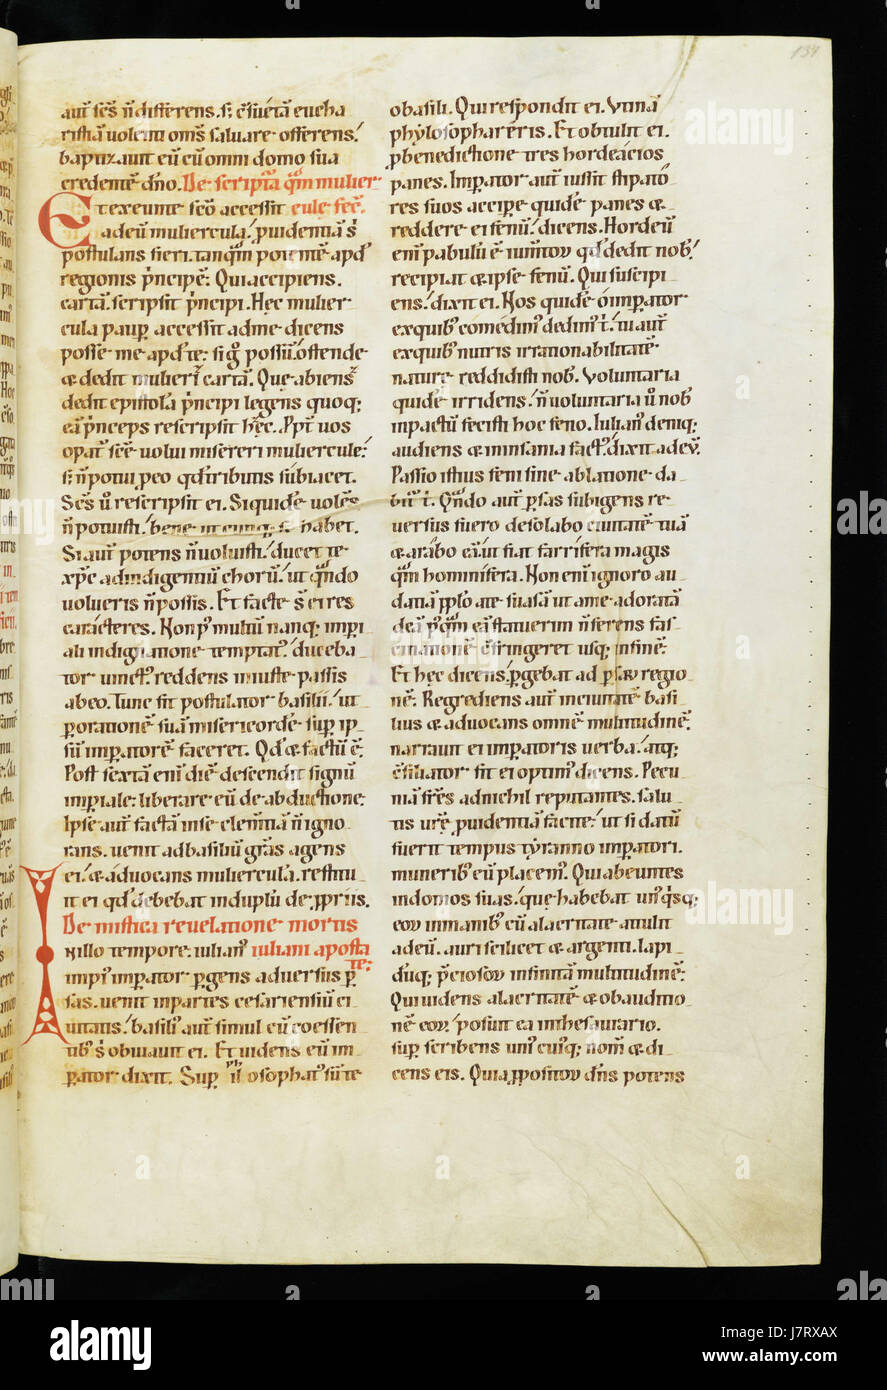 134
aut̄ sc̄s n̄ differens. s; c̄suetā eucha
ristiā uolens om̄s saluare offerens.
baptizauit eū cū omni domo sua
credentē dn̄o. De scripta qm̄ mulier
Et exeunte sc̄o accessit cule fec̄.
ad eū muliercula. puidentia s̄
postulans fieri. tanqm̄ potentē apd̄
regionis p̄ncipē. Qui accipiens
cartā. scripsit p̄ncipi. Hec mulier
cula paup accessit ad me dicens
posse me apd̄ te. si q̄ possū. ostende
& dedit mulieri cartā. Que abiens
dedit epistolā p̄ncipi legens quoq;
eā p̄nceps rescripsit hec. Ppt̄ uos
opat̄ sc̄e uolui misereri muliercule.
s; n̄ potui. p eo qd̄ tributis subiacet.
Sc̄s u̅ rescripsit ei. Siquidē uolēs
n̄ potuisti. bene habet.
Si aut̄ potens n̄ uoluisti. ducet te
xp̄c ad indigentiū chorū. ut qn̄do
uolueris n̄ possis. Et facte s̄ ei res
caracteres. Non p̄ multū nanq; impi
ali indignatione temptat̄. duceba
tur uinct̄. reddens iniuste passis
ab eo. Tunc fit postulator basilii. ut
p orationē suā misericordē sup ip
sū imperatorē faceret. Qd̄ & factū ē.
Post sextā eni diē descendit signū
impiale. liberare eū de abductione.
Ipse aut̄ factā in se clem̄tiā n̄ igno
rans. uenit ad basiliū grās agens
ei. & aduocans mulierculā. restitu
it ei qd̄ debebat in duplū de ppriis.
De mistica reuelatione mortis
N illo tempore. iulian' iuliani aposta
te.
impi' impator pgens aduersus p
sas. uenit in partes cesariensiū ci
uitatis. basili' aut̄ simul cū coessen
tib' s̄ obuiauit ei. Et uidens eū im
pator dixit. Sup phylosophat' sū te
o basili. Qui respondit ei. Vtinā
phylosophareris. Et obtulit ei.
p benedictione tres hordeacios
panes. Impator aut̄ iussit stipatō
res suos accipe quidē panes &
reddere ei fenū. dicens. Hordeū
eni pabulū ē iumtou qd̄ dedit nob'.
recipiat & ipse fenū. Qui suscipi
ens. dixit ei. Nos quidē ō impator
ex quib' comedim' dedim' t̄. tu aut̄
ex quib' nutris irrationabilitatē
nature reddidisti nob'. Voluntaria
quidē irridens. n̄ uoluntaria u̅ nob'
in pactū fecisti hoc feno. Iulian' deniq;
audiens & in insania fact'. dixit ad eū.
Passio istius feni sine ablatione da
bit̄ t̄. Qn̄do aut̄ psas subigens re
uersus fuero desolabo ciuitatē tuā
& arabo eā. ut fiat farrifera magis
qm̄ hominifera. Non eni ignoro au
datiā ppl̄o a te suasā ut a me adoratā
deā p'qm̄ eā statuerim n̄ ferens fas
cinationē c̄stringeret usq; in finē.
Et hec dicens. pgebat ad psarū regio
nē. Regrediens aut̄ in ciuitatē basi
lius & aduocans omnē multitudinē.
narrauit ei impatoris uerba. atq;
c̄siliator fit ei optim' dicens. Pecu
niā fr̄es ad nichil reputantes. salu
tis ur̄e puidentiā facite. ut si datū
fuerit tempus tyranno impatori.
munerib' eū placem'. Qui abeuntes
in domos suas. que habebat un'q̄sq;
eou in manib' cū alacritate attulit
ad eū. auri scilicet & argenti. lapi
dūq; p̄ciosou infinitā multitudinē.
Qui uidens alacritatē & obauditio
nē eou. posuit ea in thesaurario.
sup scribens uni cuiq; nom̄ & di
cens eis. Quia ppositou dn̄s potens
alamy
alamy
Image ID: J7RXAX
www.alamy.com